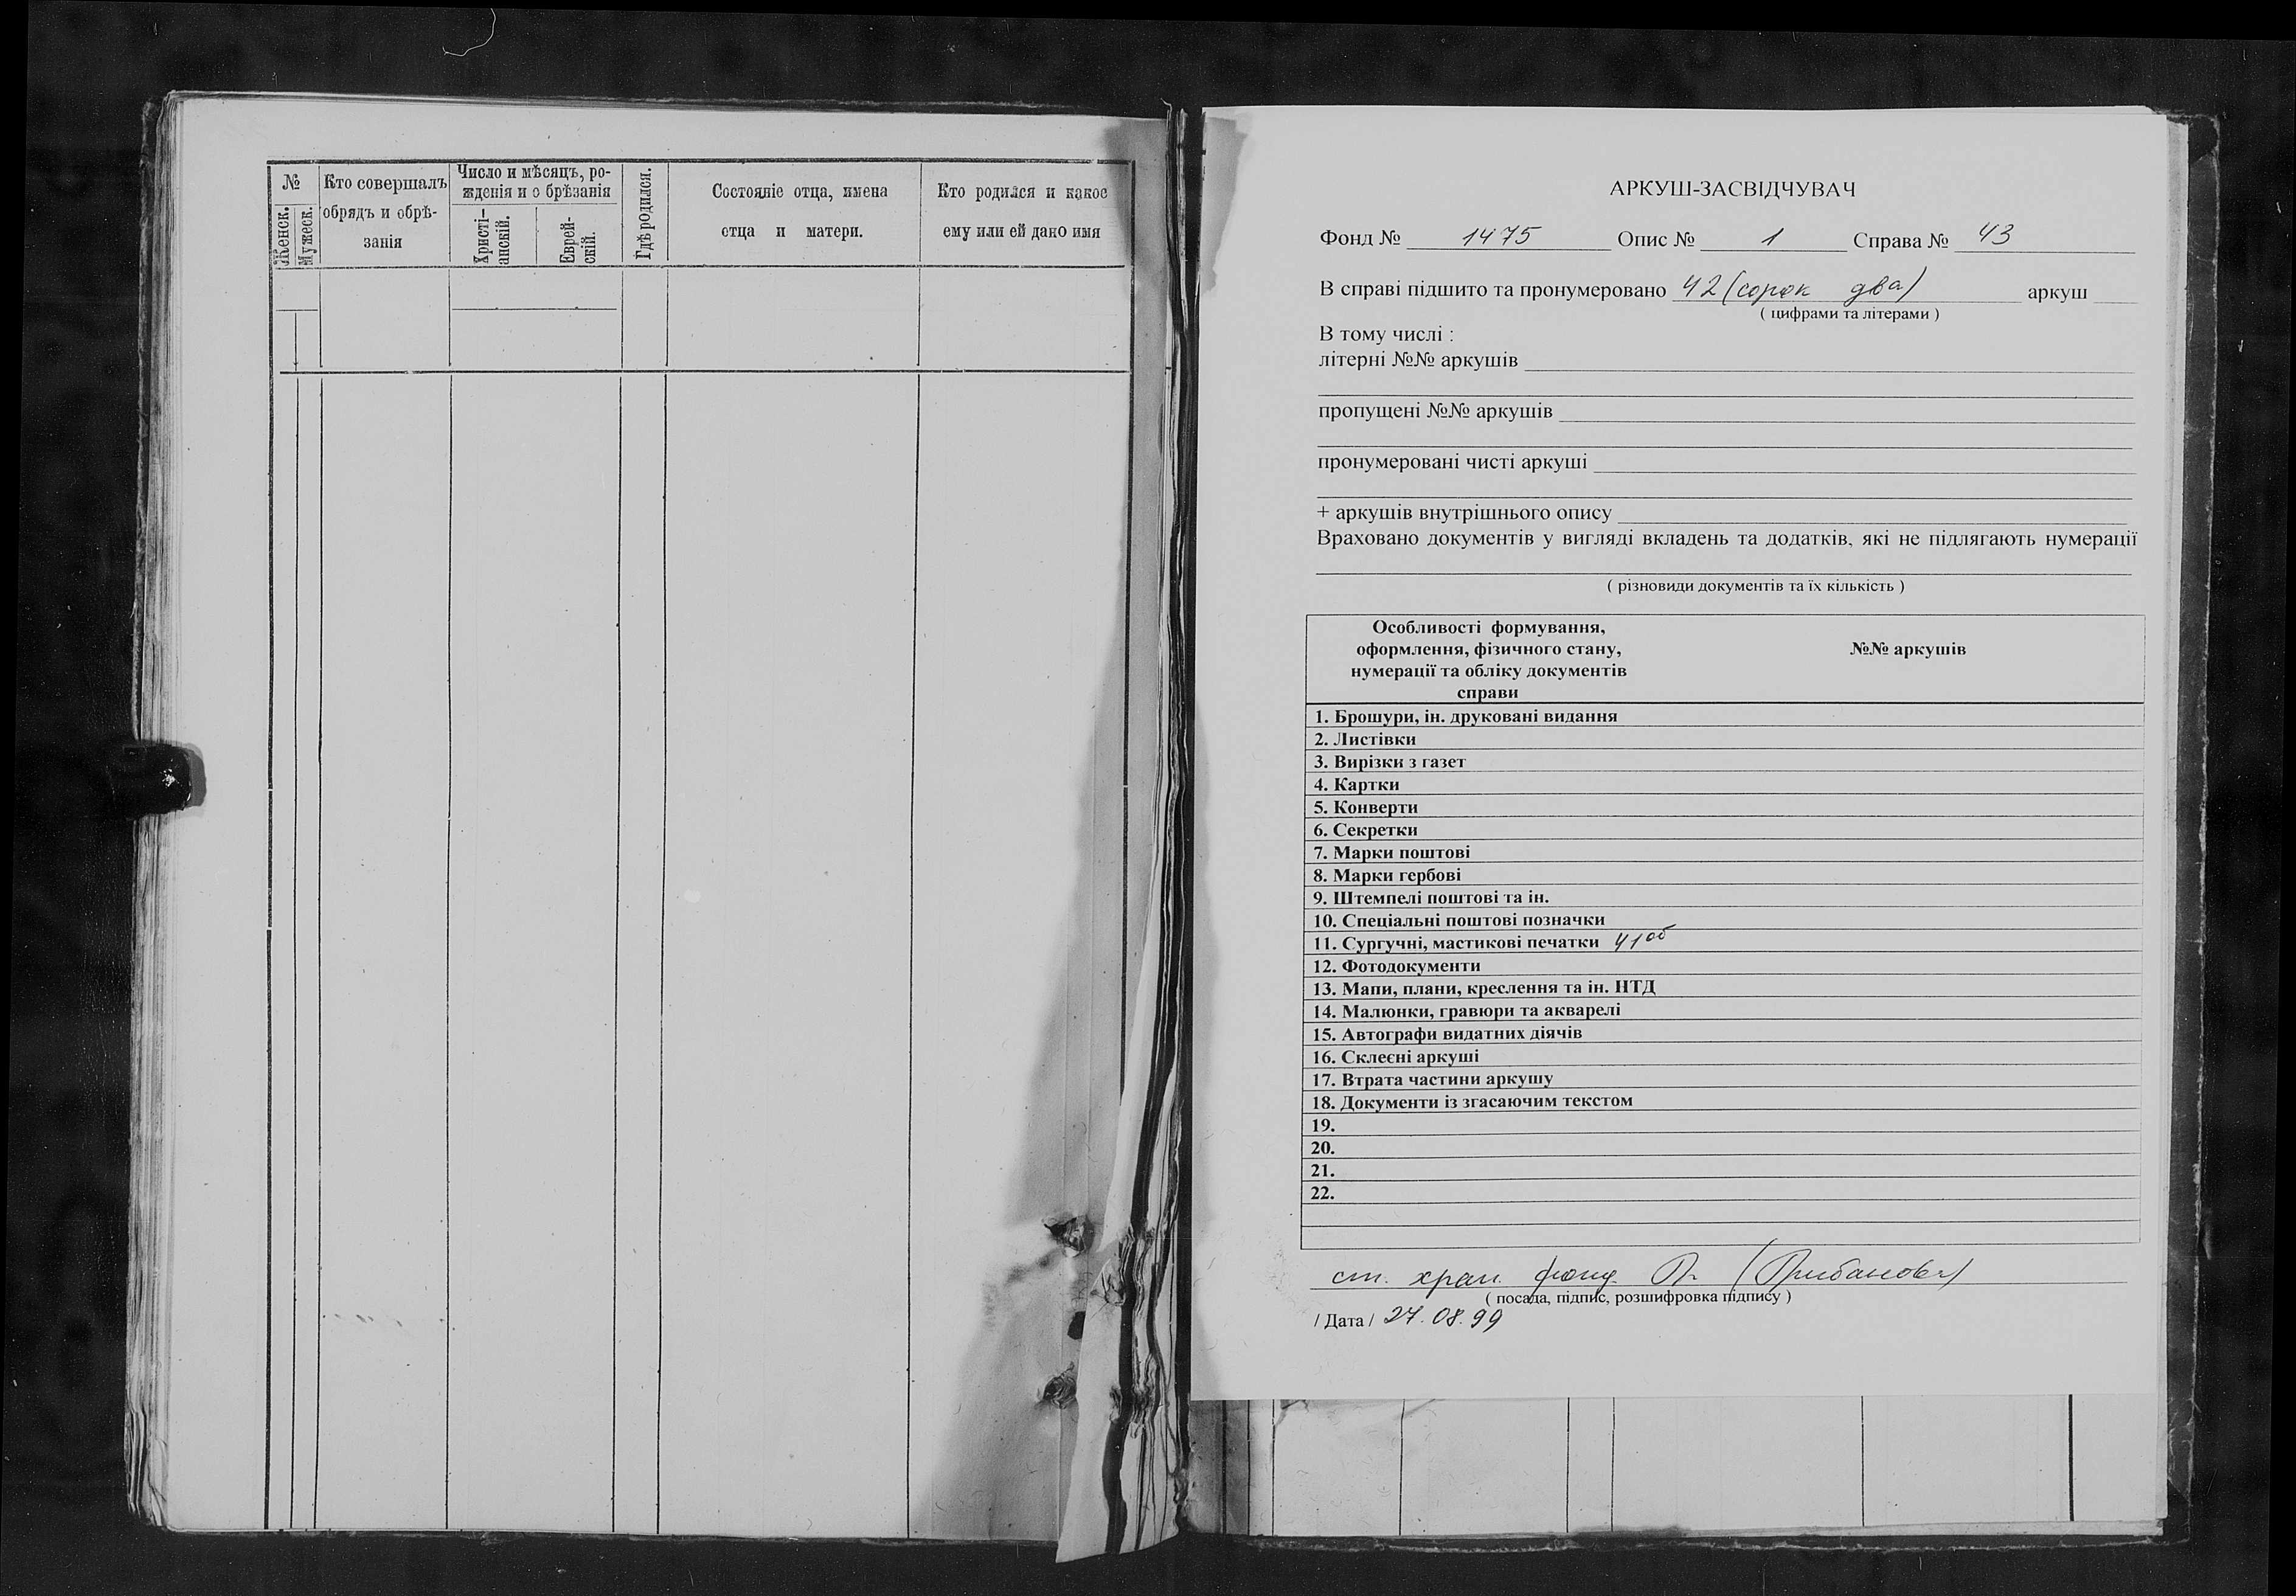 №
Женск.
Мужеск.
Кто совершалъ
обрядъ и обрѣ-
занія
Число и мѣсяцъ, ро-
жденія и о брѣзанія
Христі-
анскій.
Еврей-
скій.
Гдѣ родился.
Состояніе отца, имена
отца и матери.
Кто родился и какое
ему или ей дано имя
АРКУШ-ЗАСВІДЧУВАЧ
Фонд № 1475 Опис № 1 Справа № 43
В справі підшито та пронумеровано 42 (сорок два) аркуш
( цифрами та літерами )
В тому числі :
літерні №№ аркушів
пропущені №№ аркушів
пронумеровані чисті аркуші
+ аркушів внутрішнього опису
Враховано документів у вигляді вкладень та додатків, які не підлягають нумерації
( різновиди документів та їх кількість )
Особливості формування,
оформлення, фізичного стану,
нумерації та обліку документів
справи
№№ аркушів
1. Брошури, ін. друковані видання
2. Листівки
3. Вирізки з газет
4. Картки
5. Конверти
6. Секретки
7. Марки поштові
8. Марки гербові
9. Штемпелі поштові та ін.
10. Спеціальні поштові позначки
11. Сургучні, мастикові печатки 41об
12. Фотодокументи
13. Мапи, плани, креслення та ін. НТД
14. Малюнки, гравюри та акварелі
15. Автографи видатних діячів
16. Склеєні аркуші
17. Втрата частини аркушу
18. Документи із згасаючим текстом
19.
20.
21.
22.
ст. хран. фонд.
( посада, підпис, розшифровка підпису )
/ Дата / 27.08.99